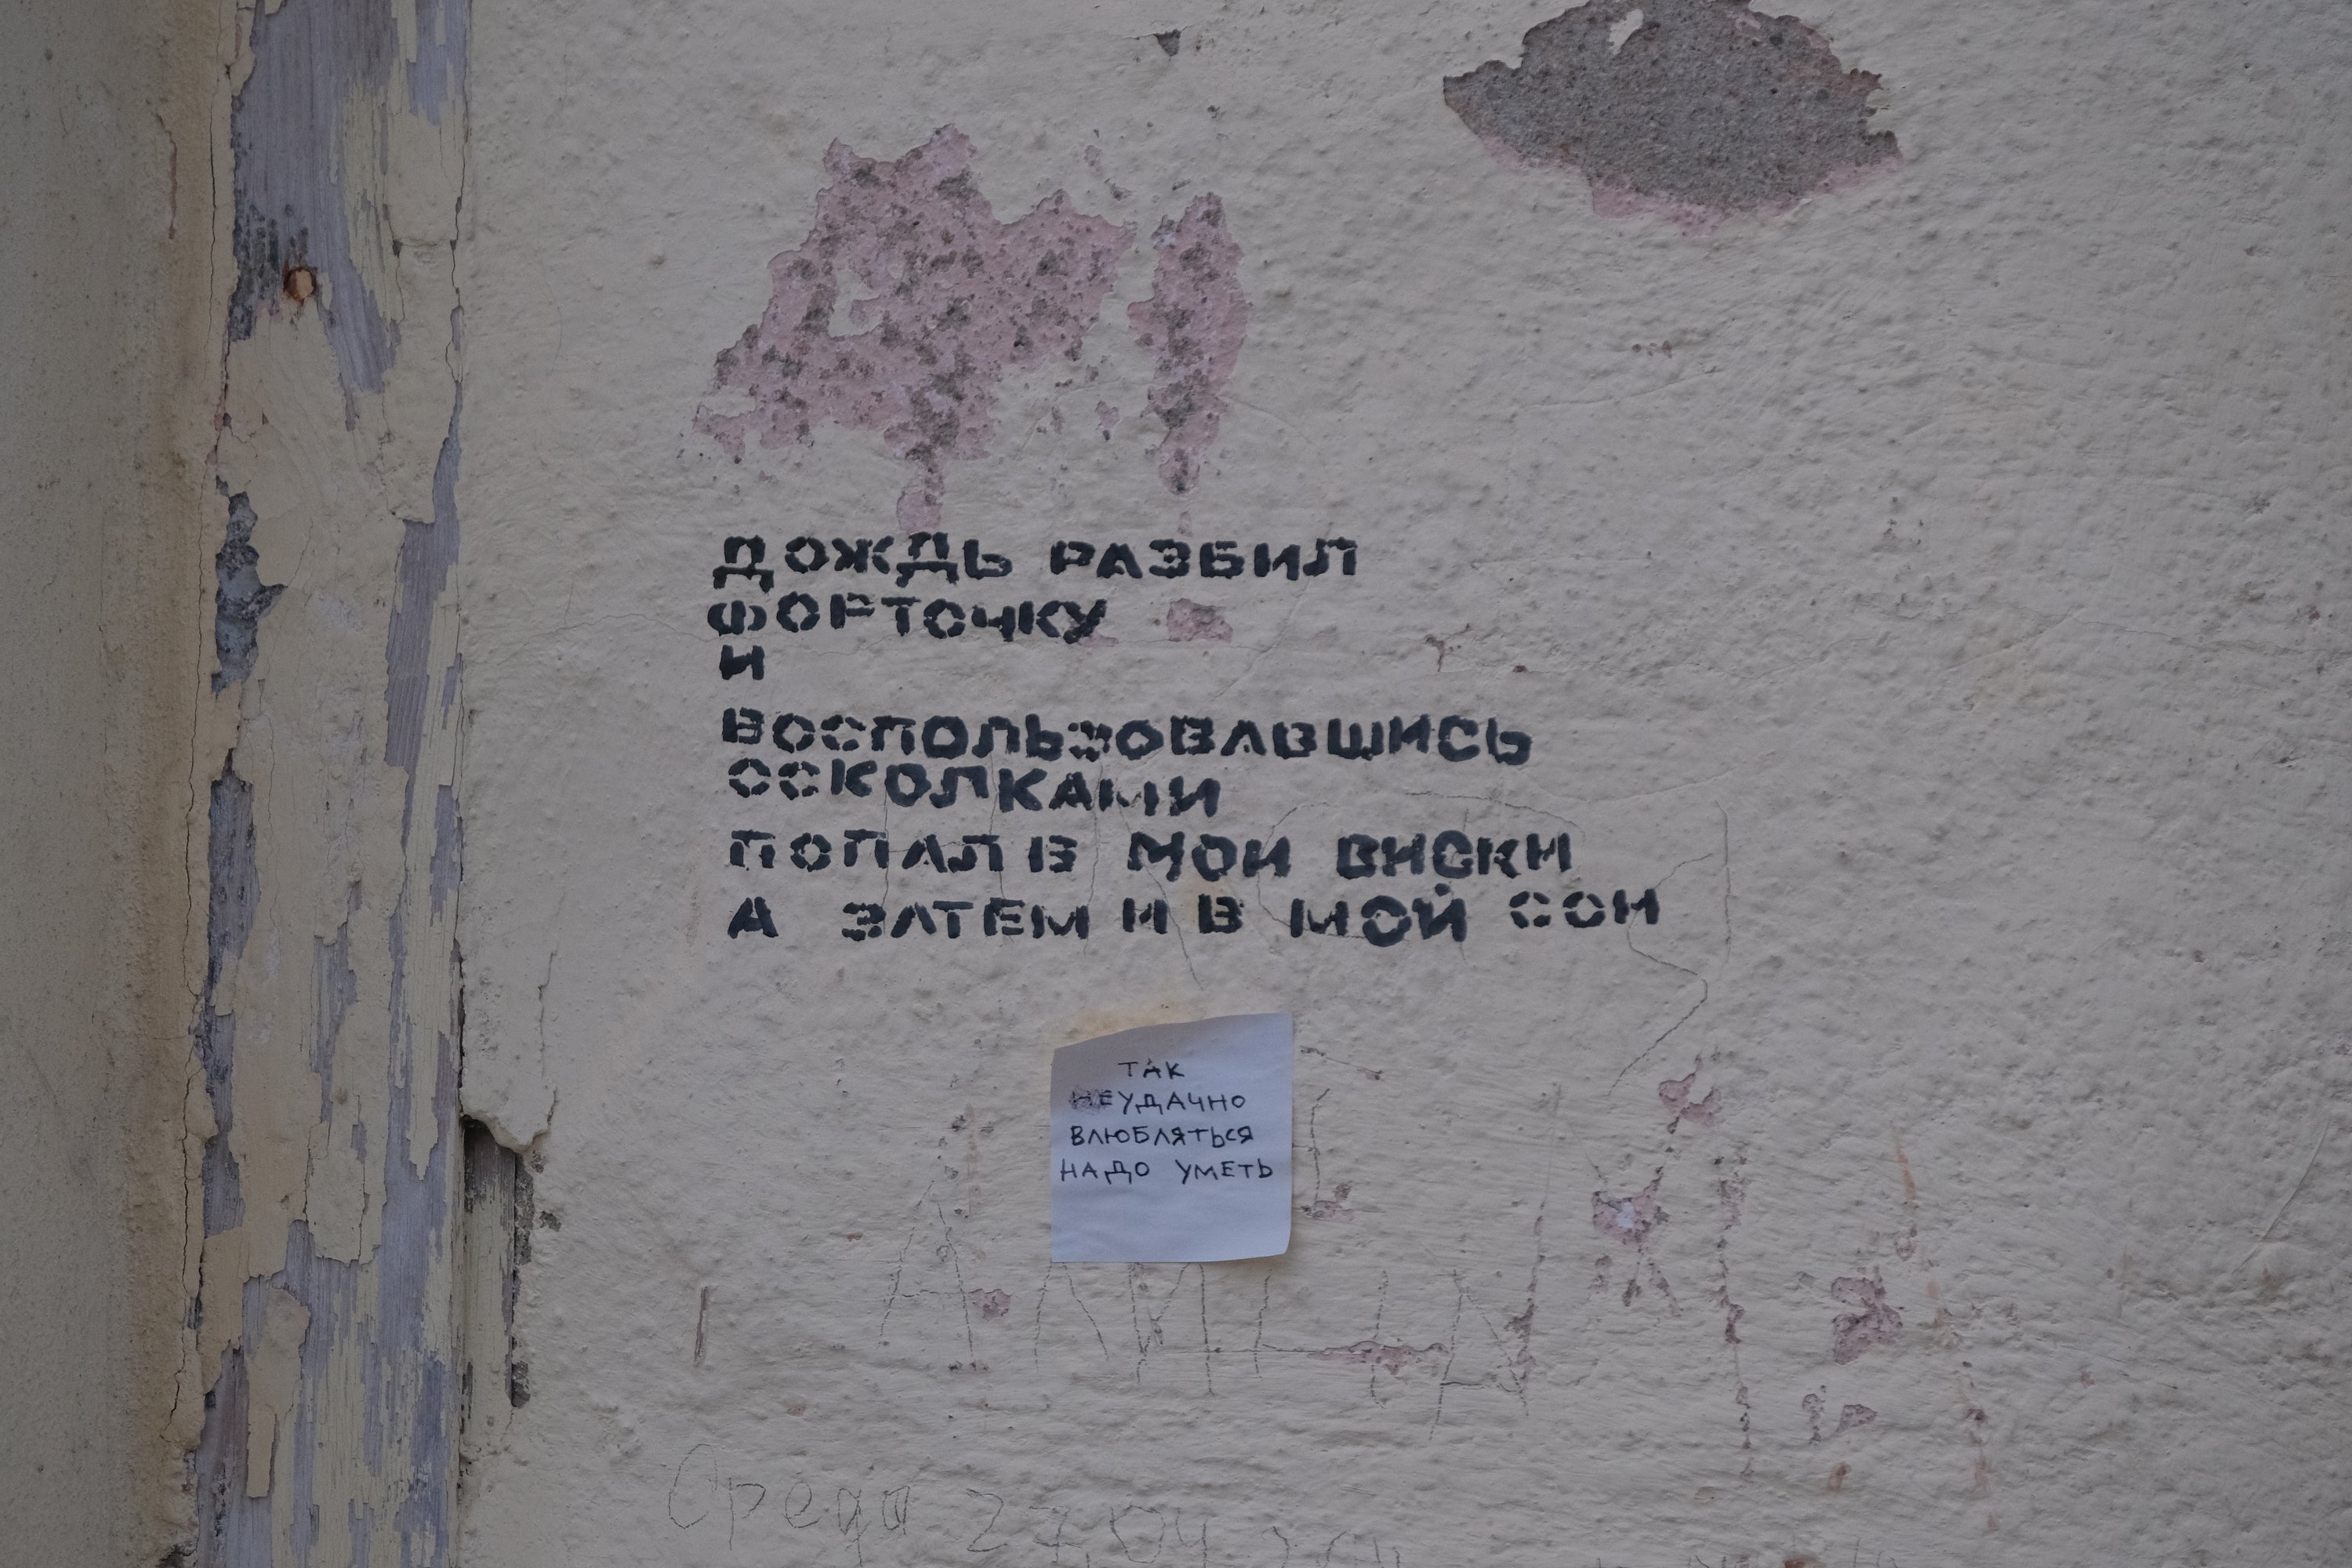 ДОЖДЬ РАЗБИЛ
ФОРТОЧКУ
И
ВОСПОЛЬЗОВАВШИСЬ
ОСКОЛКАМИ
ПОПАЛ В МОИ ВИСКИ
А ЗАТЕМ И В МОЙ СОН
ТАК
НЕУДАЧНО
ВЛЮБЛЯТЬСЯ
НАДО УМЕТЬ
Среда 27.04